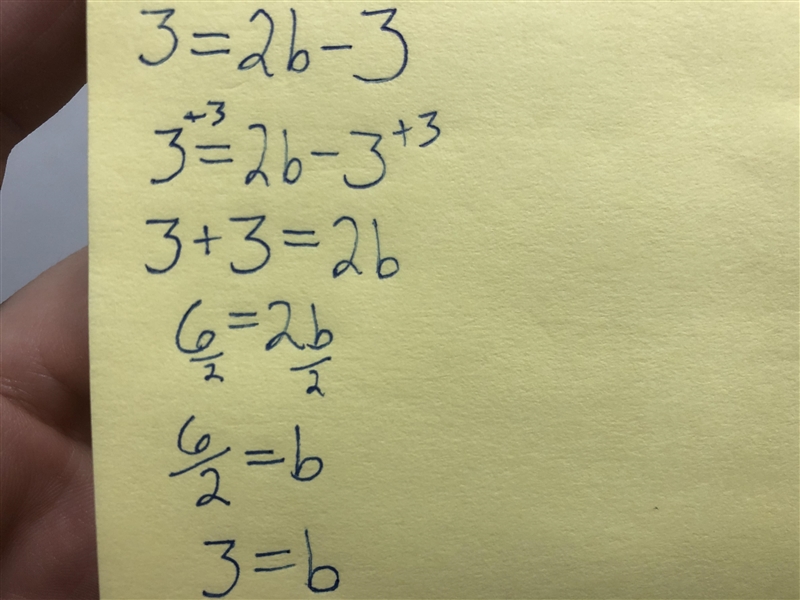 3 = 2b - 3
3 +3 = 2b - 3 +3
3 + 3 = 2b
6/2 = 2b/2
6/2 = b
3 = b